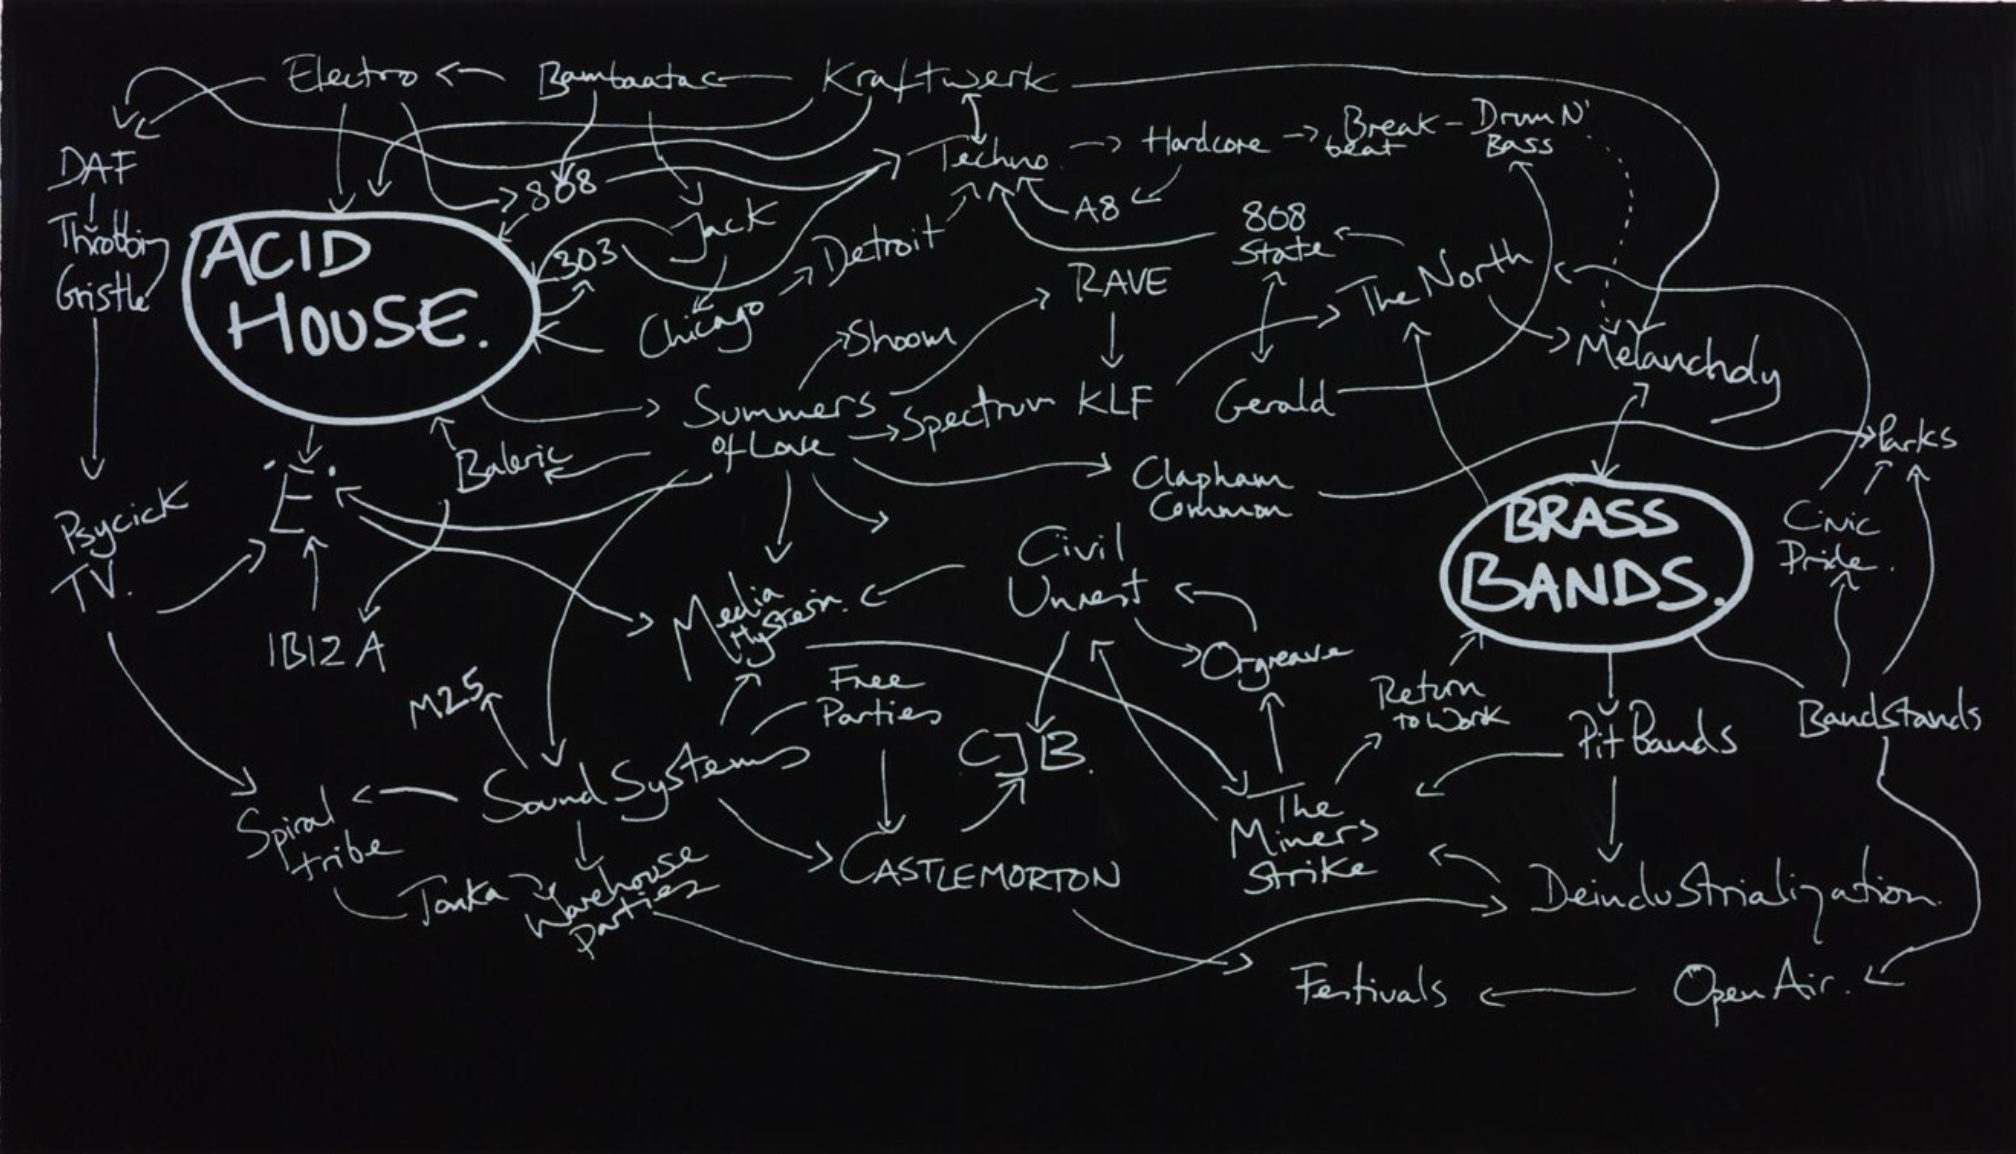 Electro
Bambaataa
Kraftwerk
DAF
Throbbing
Gristle
808
Techno
Hardcore
Break
beat
Drum N'
Bass
ACID
HOUSE.
303
Jack
Detroit
A8
808
State
The North
RAVE
Chicago
Shoom
Melancholy
Summers
of Love
Spectrum
KLF
Gerald
Parks
Baleric
'E'
Clapham
Common
BRASS
BANDS.
Civic
Pride.
Psycick
TV.
Civil
Unrest
IBIZA
Media
Hysteria.
Orgreave
M25
Free
Parties
Return
to Work
CJB.
Pit Bands
Bandstands
Sound Systems
Spiral
tribe
The
Miners
Strike
Tonka
Warehouse
Parties
CASTLEMORTON
Deindustrialization.
Festivals
Open Air.